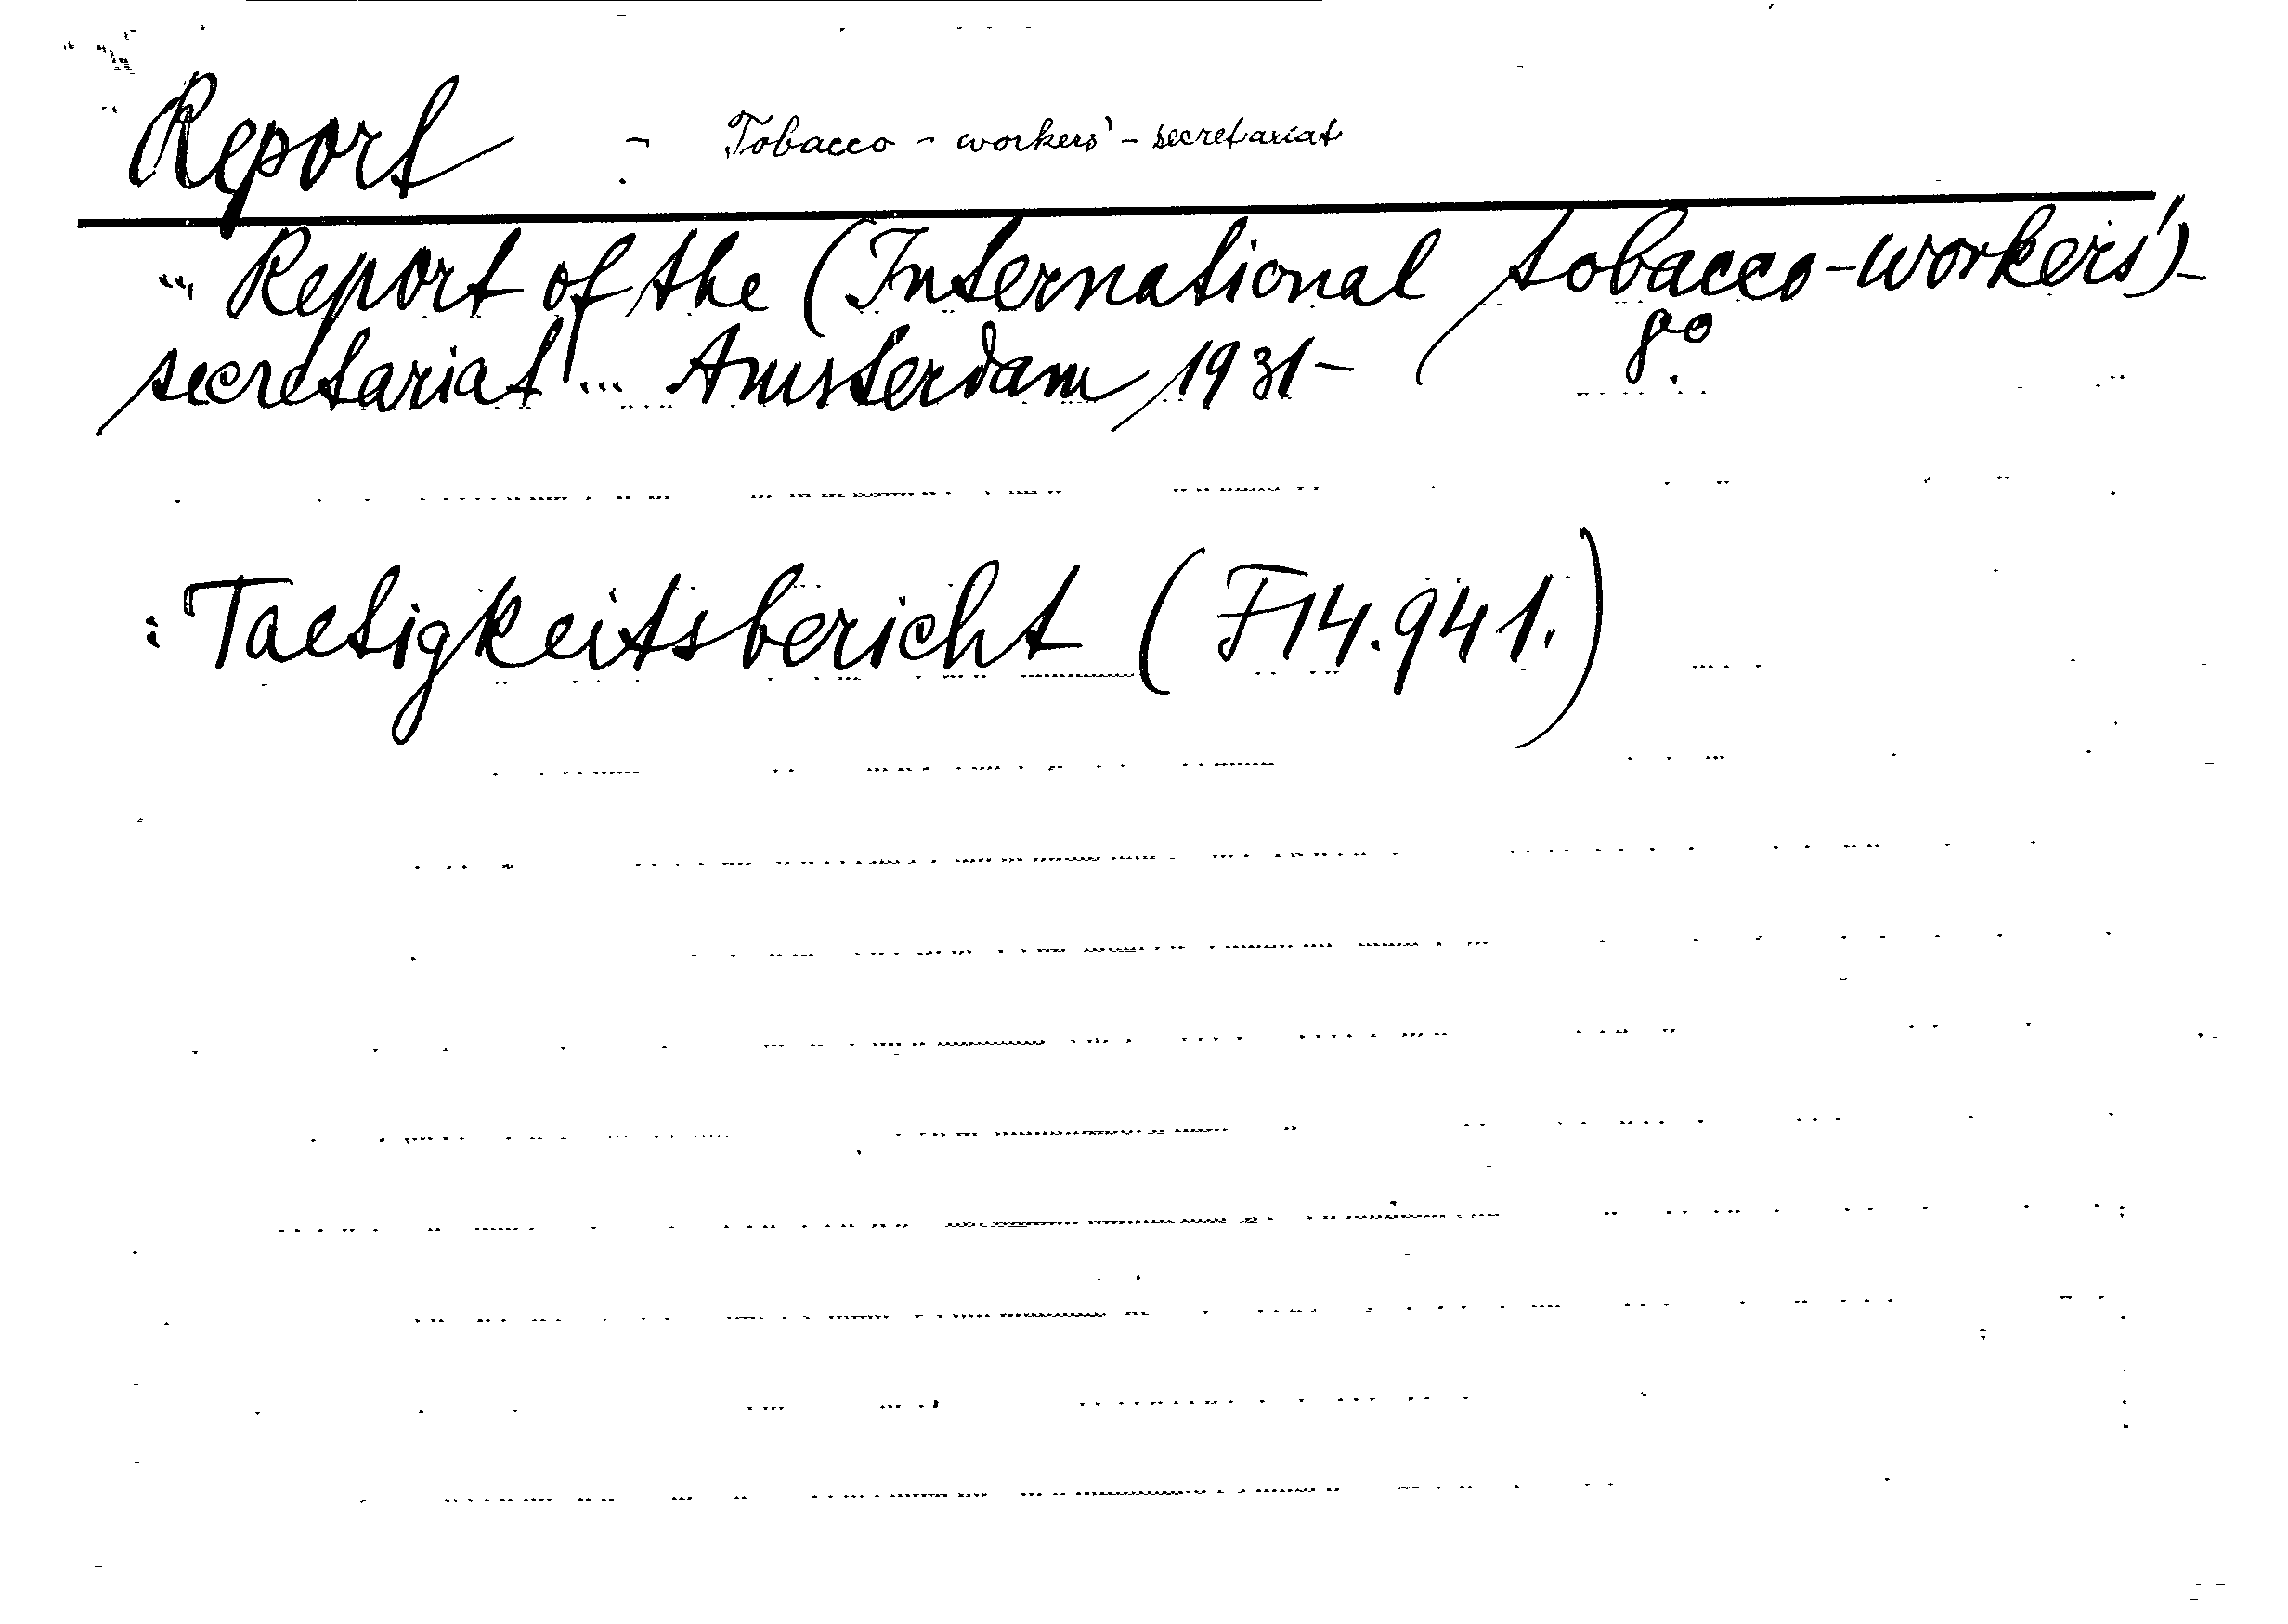 Report - Tobacco - workers' - secretariat
"Report of the (International tobacco-workers')-
secretariat"... Amsterdam, 1931- 8°
: Taetigkeitsbericht (F14.941.)